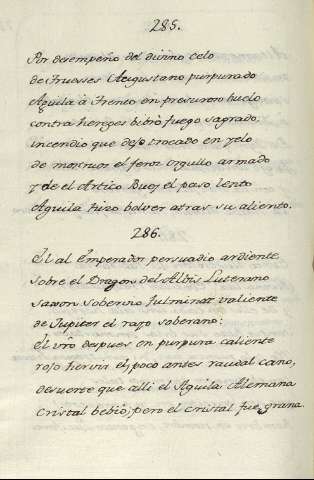 285.
Por desempeño del divino celo
de Truesses Augustano purpurado
Aguila à Trento en presuroso buelo
contra hereges bibiò fuego sagrado;
incendio que dejo trocado en yelo
de el feroz orgullo armado
y de el Artico Buey el paso lento
Aguila hizo bolver atras su aliento.
286.
El al Emperador persuadio ardiente
sobre el Dragon del Albis Luterano
saxon soberuio fulminar valiente
de Jupiter el rayo soberano:
El vio despues en purpura caliente
rojo hervir el, poco antes raudal cano,
desuerte que alli el Aguila Alemana
cristal bebiò, pero el cristal fue, grana.